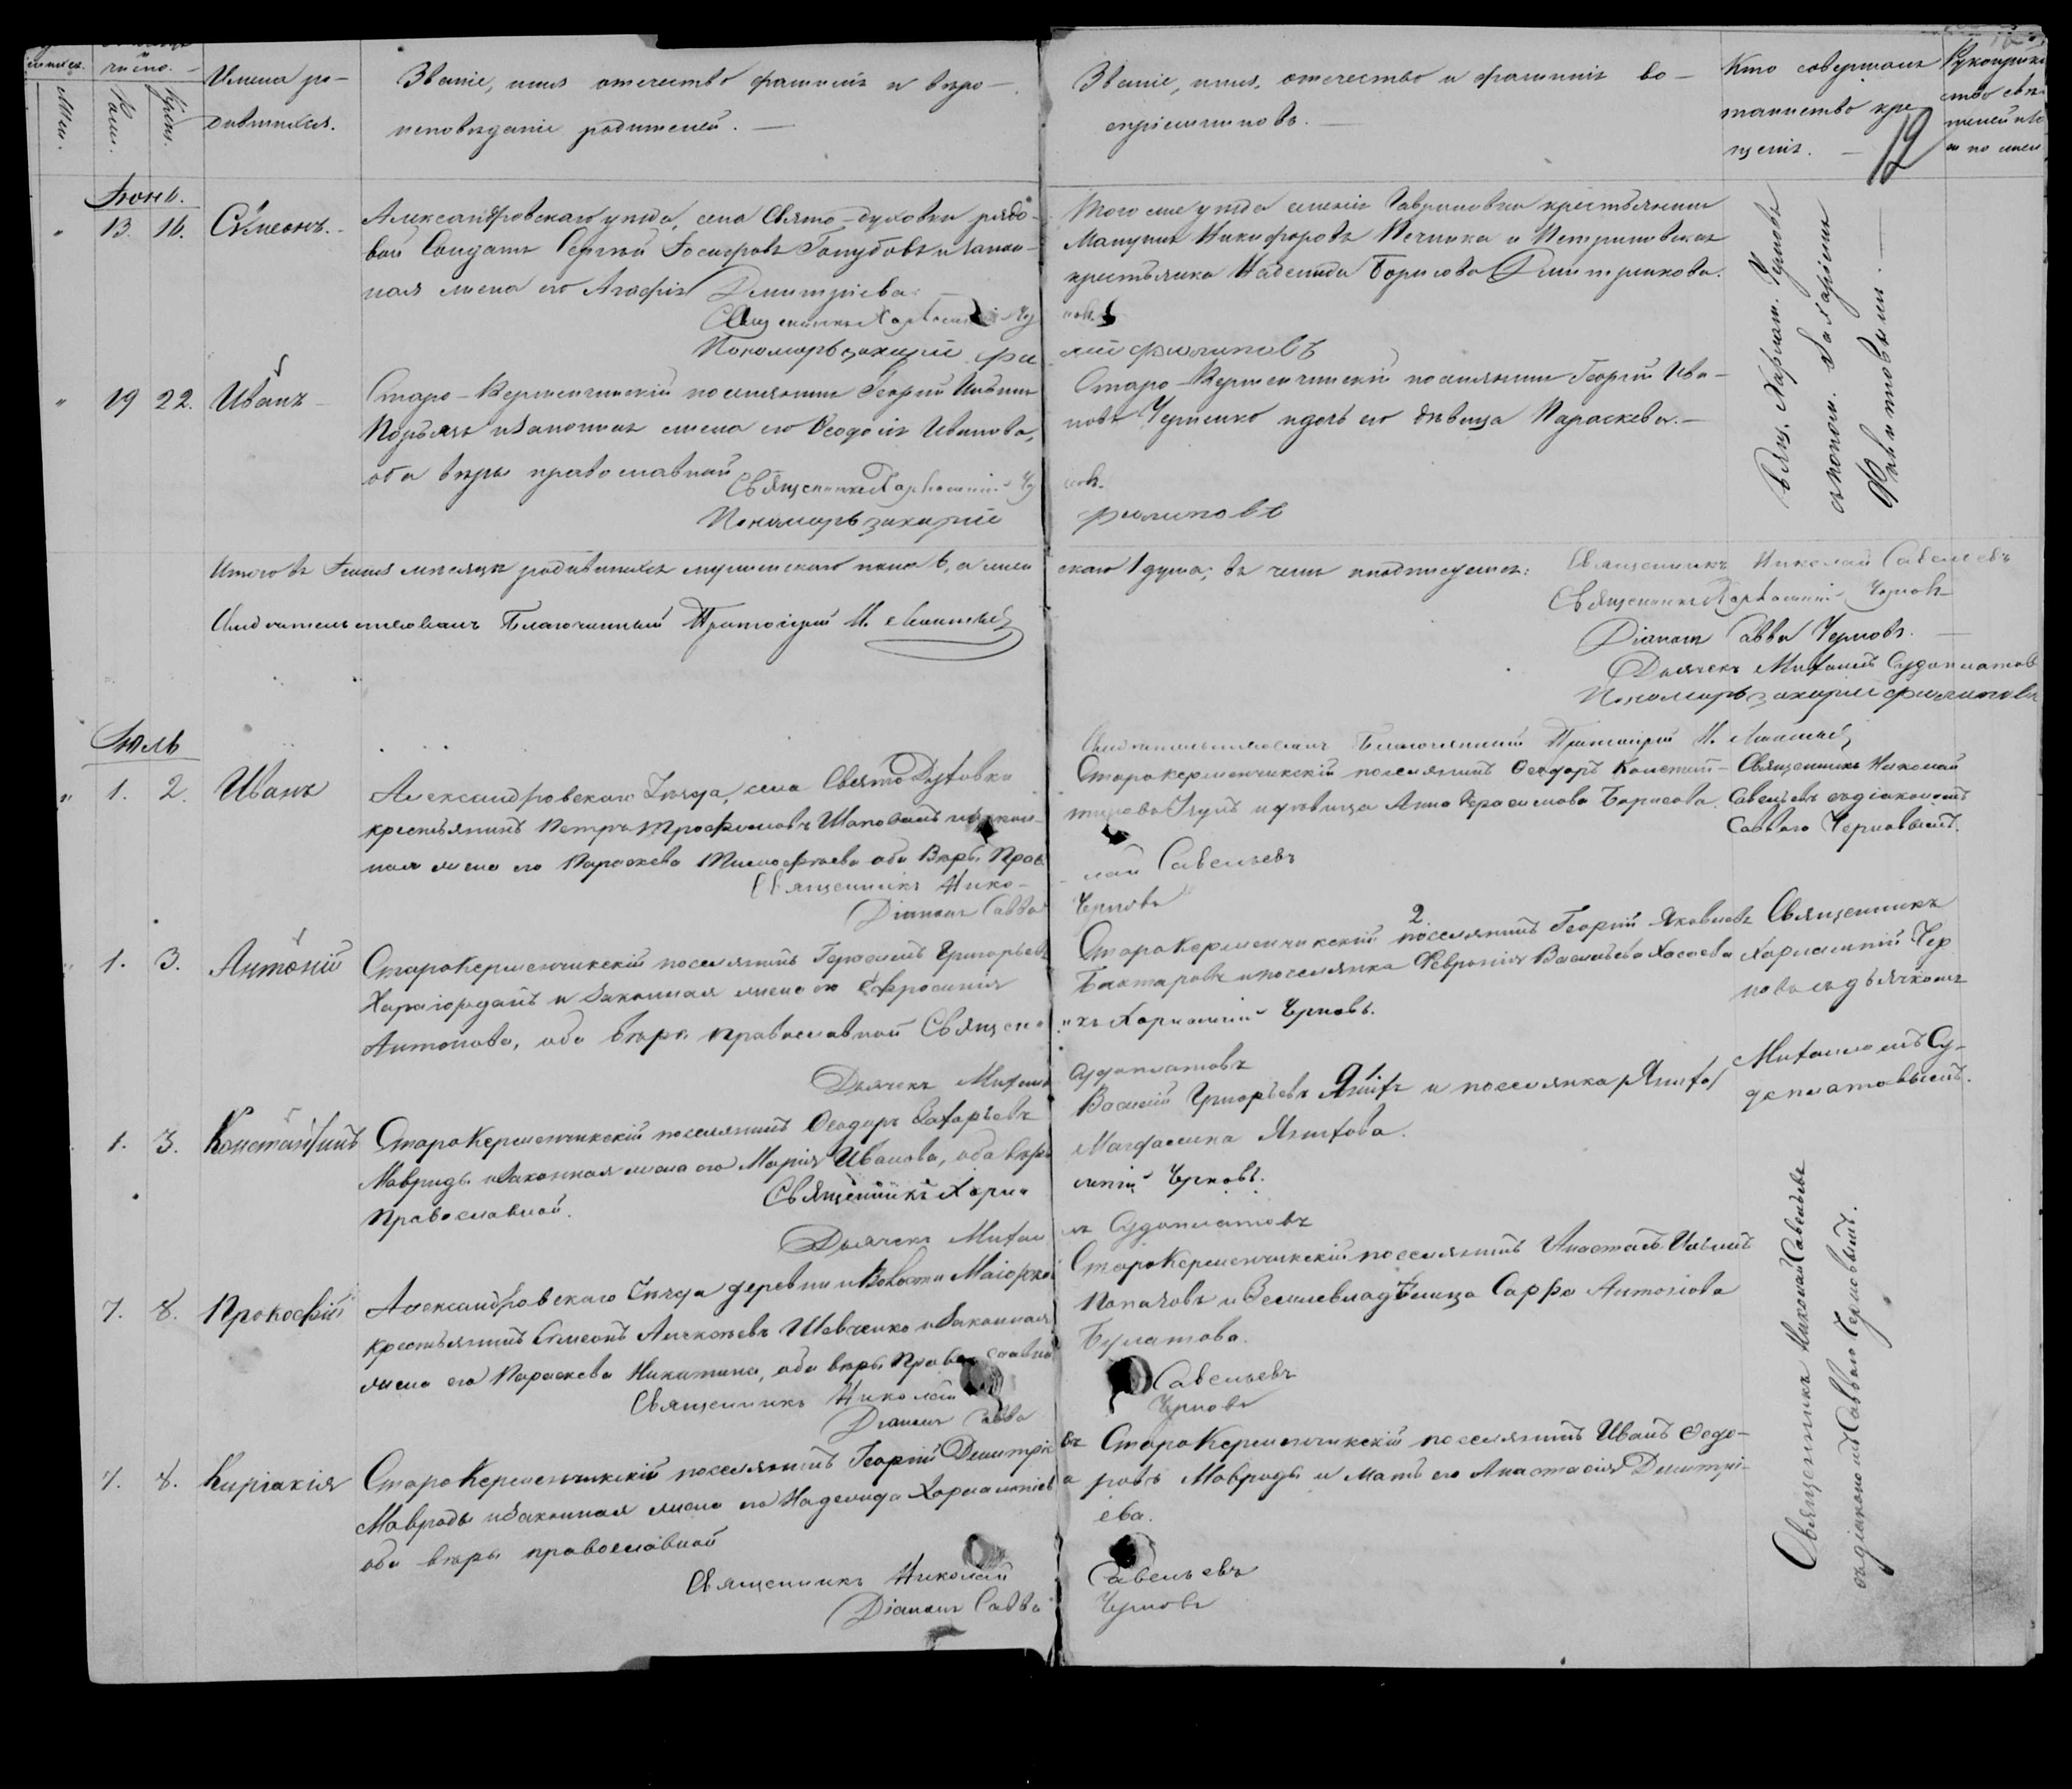 числа.
Имена ро-
дившихся.
Званіе, имя отечество фамилія и вѣро-
исповѣданіе родителей. —
Званіе, имя, отечество и фамилія во-
спріемниковъ. —
Кто совершалъ
таинство кре-
щенія. —
12
Іюнь.
13. 16. Сѵмеонъ. -
Александровскаго уѣзда, села Свято-духовки рядо-
вой Солдатъ Сергѣй Іосифовъ Голубовъ и закон-
ная жена его Агафія Дмитріева. —
Того же уѣзда селенія Гавриловки крестьянинъ
Никифоровъ Печника и Петриковская
крестьянка Надежда Борисова Дмитрикова.
Священникъ Харлампій Чер
новъ
Пономарь захарій фи
липовъ
19 22. Иванъ -
Старо-Керменчикскій поселянинъ Георгій
и Законная жена его Ѳеодосія Иванова,
оба вѣры православной
Старо-Керменчикскій поселянинъ Георгій Ива-
новъ Черменко и дочь его дѣвица Параскева. -
Священникъ Харлампій Чер
новъ
Пономарь захарій
филиповъ
Свящ. Харламп. Черновъ
съ поном. Захаріемъ
Филиповымъ. —
Итого въ Іюнѣ мѣсяцѣ родившихся мужескаго пола 6, а жен
скаго 1 душа; въ чемъ и подписуемся:
Священникъ Николай Савельевъ
Священникъ Харлампій Черновъ
Діаконъ Савва Черновъ. —
Дьячекъ Михаилъ Судоплатовъ
Пономарь захарій филиповъ
Свидѣтельствовалъ Благочинный Протоіерей
Свидѣтельствовалъ Благочинный Протоіерей
Іюль
1. 2. Иванъ
Александровскаго Уѣзда, села Свято Духовки
крестьянинъ Петръ Трофимовъ Шаповалъ и закон-
ная жена его Параскева Тимофѣева оба Вѣры Прав
Старокерменчикскій поселянинъ Ѳеодоръ Констан-
тиновъ и дѣвица Анна Герасимова Борисова.
Священникъ Николай
Савельевъ съ діакономъ
Саввою Черновымъ.
Священникъ Нико-
лай Савельевъ
Діаконъ Савва
Черновъ
1. 3. Антоній
Старокерменчикскій поселянинъ Герасимъ Григорьевъ
Харагюрданъ и Законная жена его Ефросинія
Антонова, оба вѣры православной Священ
2
Старокерменчикскій поселянинъ Георгій Яковлевъ
Бахтаровъ и поселянка Февронія Васильева Хасаева
къ Харлампій Черновъ.
Священникъ
Харлампій Чер
новъ съ дьячкомъ
Михаиломъ Су-
доплатовымъ.
Дьячекъ Михаилъ
Судоплатовъ
1. 3. Константинъ
Старокерменчикскій поселянинъ Ѳеодоръ Захарьевъ
Мавродъ и Законная жена его Марія Иванова, оба вѣры
Православной.
Василій Григорьевъ и поселянка
Магдалина
Священникъ Харла
мпій Черновъ.
Дьячекъ Михаи
лъ Судоплатовъ
7. 8. Прокофій
Александровскаго Уѣзда деревни и Волости Маіорско
крестьянинъ Сѵмеонъ Алексѣевъ Шевченко и Законная
жена его Параскева Никитина, оба вѣры Православной
Старокерменчикскій поселянинъ Анастасъ Ильинъ
Папазовъ и Землевладѣлица Сарра Антонова
Булатова.
Священникъ Николай
Савельевъ
Діаконъ Савва
Черновъ
7. 8. Киріакія
Старокерменчикскій поселянинъ Георгій Димитріе
въ
Мавродъ и Законная жена его Надежда Харлампіев
а
оба вѣры православной
Старокерменчикскій поселянинъ Иванъ Ѳеодо-
ровъ Мавродъ и мать его Анастасія Димитрі-
ева.
Священникъ Николай
Савельевъ
Діаконъ Савва
Черновъ
Священникъ Николай Савельевъ
съ діакономъ Саввою Черновымъ.